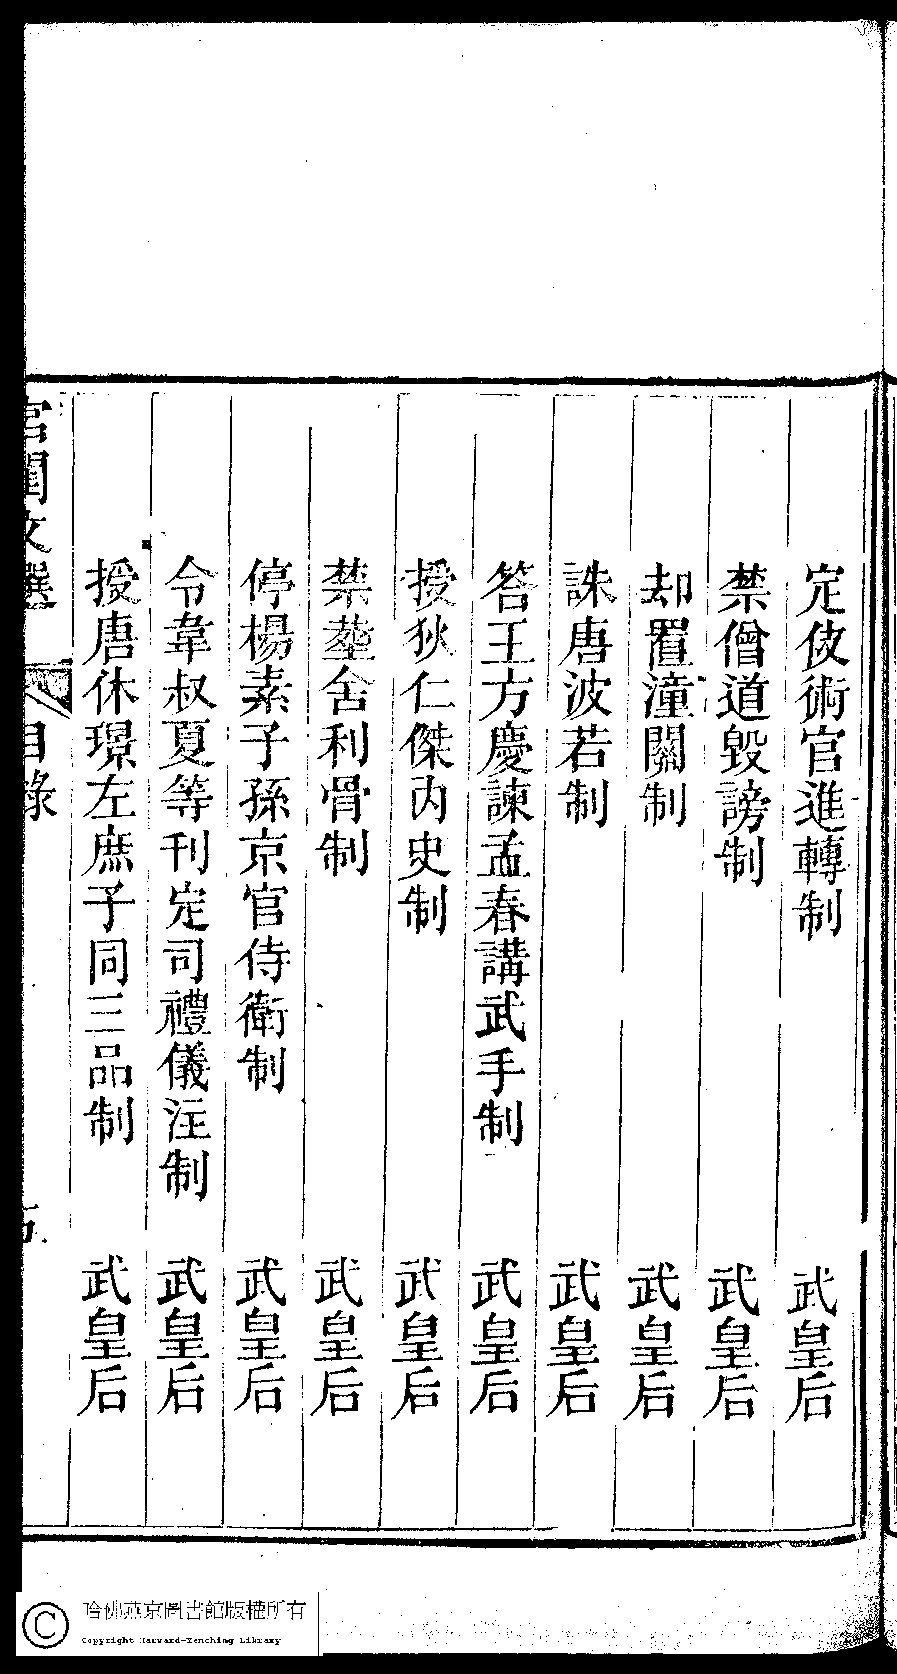 定伎術官進轉制 武皇后
禁僧道毀謗制 武皇后
却置潼關制 武皇后
誅唐波若制 武皇后
答王方慶諫孟春講武手制 武皇后
授狄仁傑内史制 武皇后
禁塟舍利骨制 武皇后
停楊素子孫京官侍衛制 武皇后
令韋叔夏等刊定司禮儀注制 武皇后
授唐休璟左庶子同三品制 武皇后
宮閨文選 目錄 五
哈佛燕京圖書館版權所有
Copyright Harvard-Yenching Library